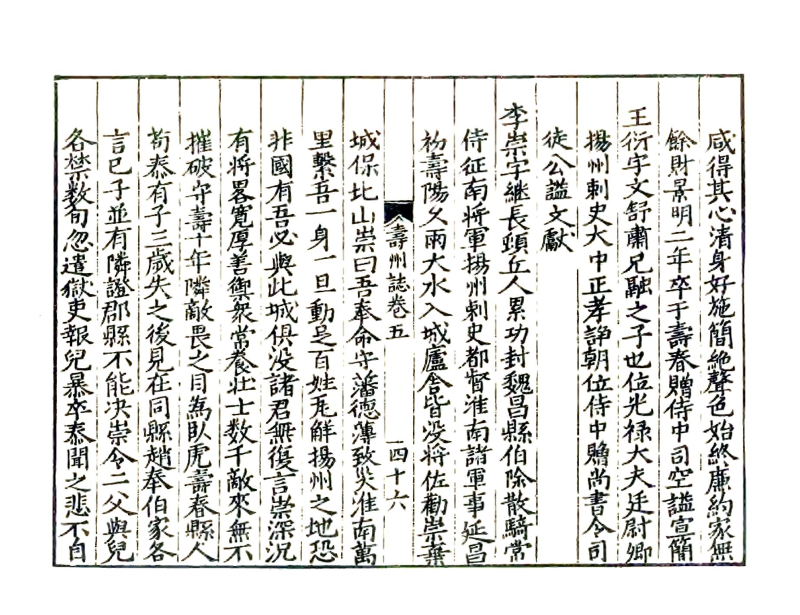 咸得其心清身好施簡絶聲色始終廉約家無
餘財景明二年卒于壽春贈侍中司空謚宣簡
王衍字文舒肅兄融之子也位光禄大夫廷尉卿
揚州刺史大中正孝諍朝位侍中贍尚書令司
徒公謚文獻
李崇字継長頓丘人累功封魏昌縣伯除散騎常
侍征南將軍揚州刺史都督淮南諸軍事延昌
初壽陽久雨大水入城廬舍皆没將佐勸崇棄
壽州誌卷五
四十六
城保北山崇曰吾奉命守藩德薄致災淮南萬
里繫吾一身一旦動足百姓瓦解揚州之地恐
非國有吾必與此城俱没諸君無復言崇深沉
有將畧寛厚善御衆常養壯士数千敵來無不
摧破守壽十年隣敵畏之目為臥虎壽春縣人
苟泰有子三歳失之後見在同縣趙奉伯家各
言已子並有隣證郡縣不能决崇令二父與兒
各禁数旬忽遣獄吏報兒暴卒泰聞之悲不自